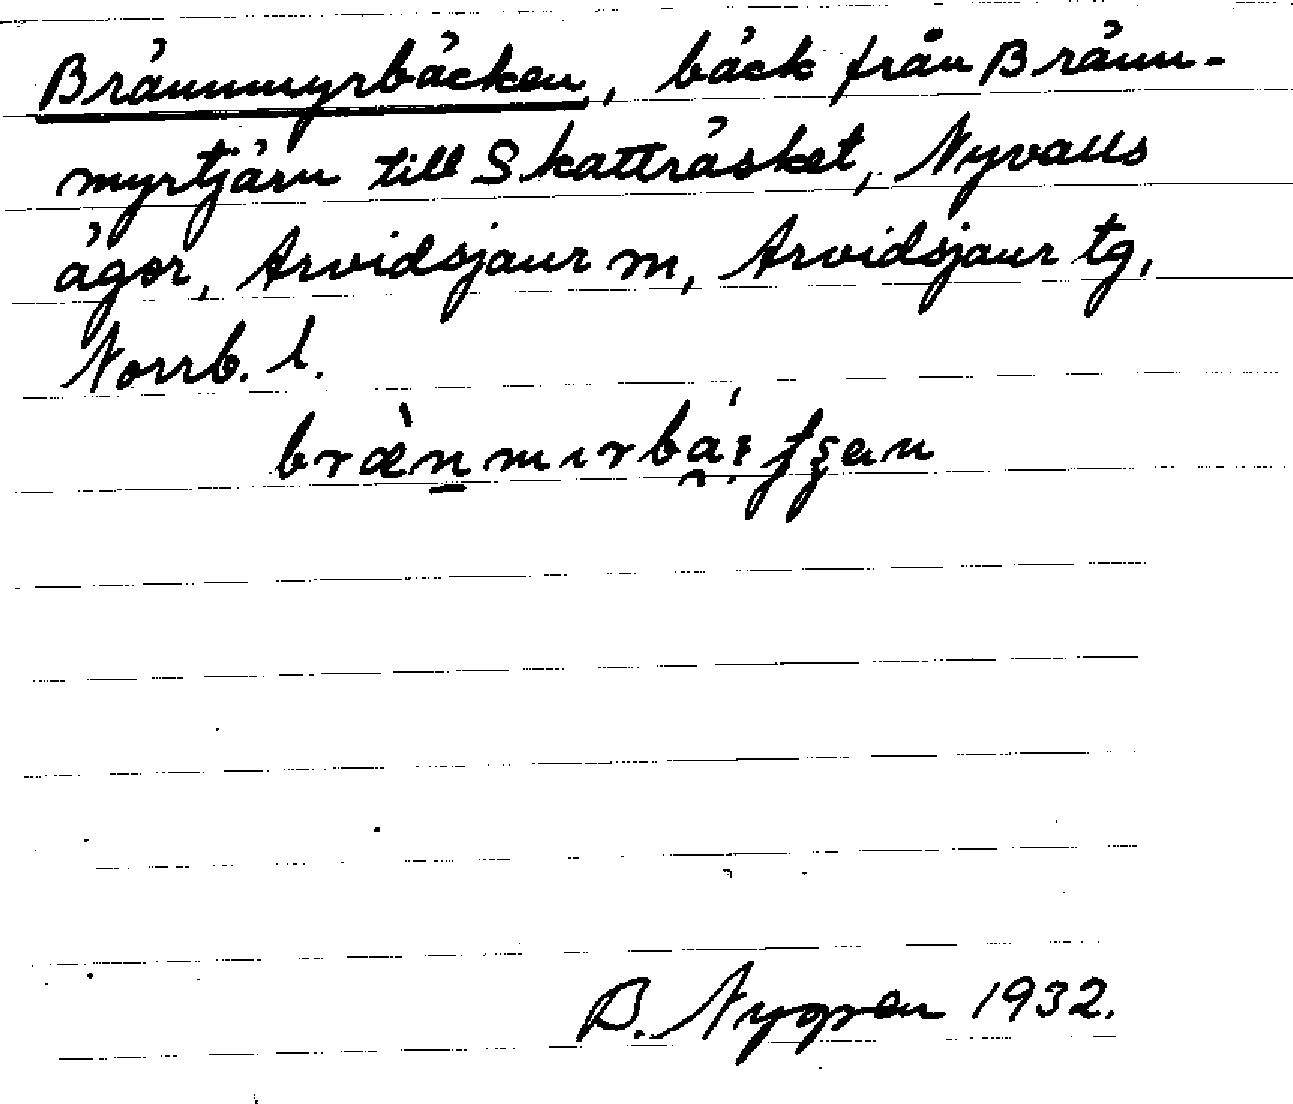 Brännmyrbäcken, bäck från Bränn-
myrtjärn till Skatträsket, Nyvalls
ägor, Arvidsjaur m, Arvidsjaur tg,
Norrb. l.
B. Nygren 1932.